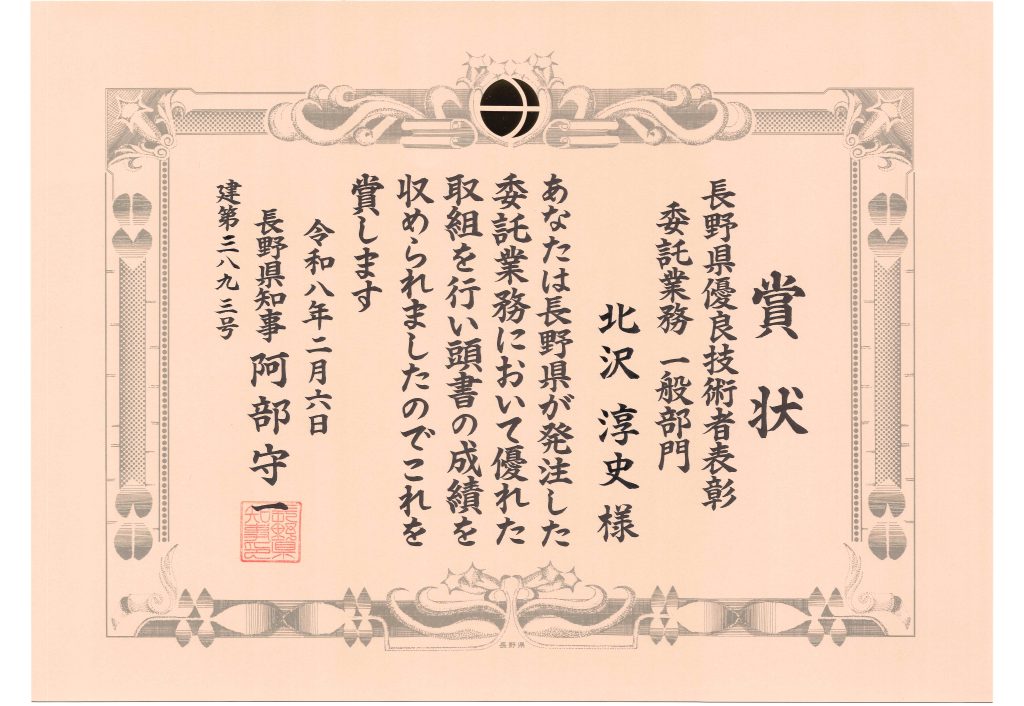 賞状
長野県優良技術者表彰
委託業務 一般部門
北沢 淳史 様
あなたは長野県が発注した
委託業務において優れた
取組を行い頭書の成績を
収められましたのでこれを
賞します
令和八年二月六日
長野県知事 阿部守一
建第三八九三号
長野県知事之印
長野県